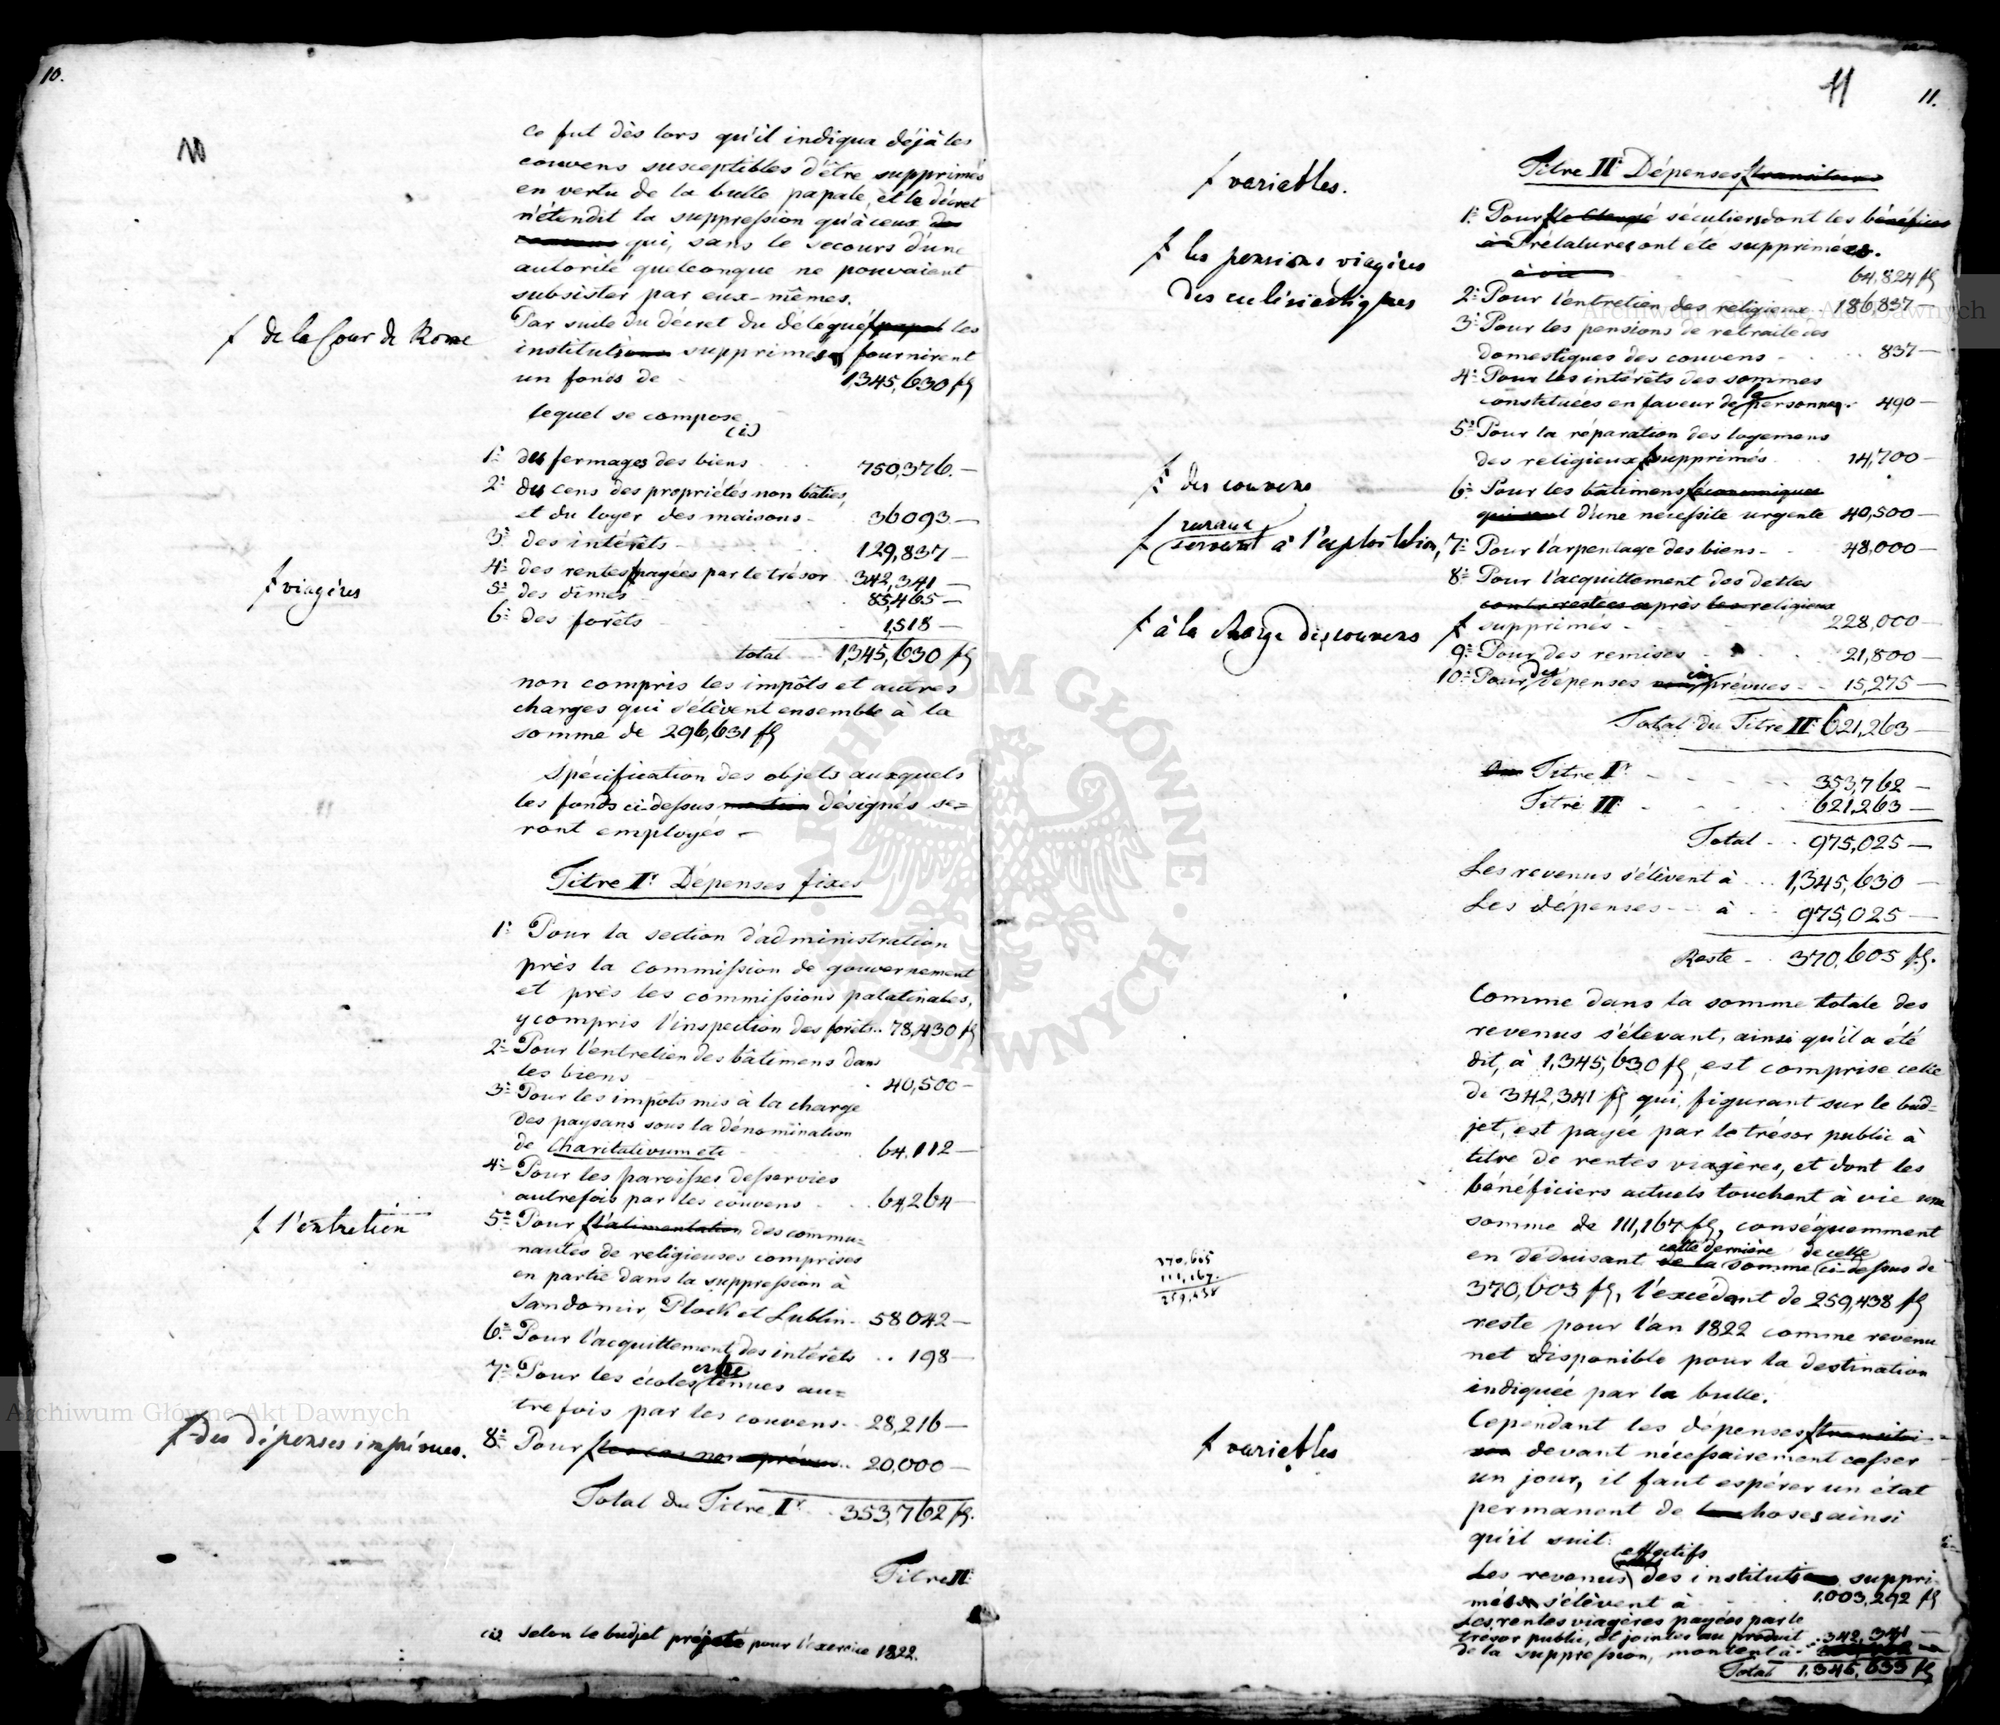 10.
10
ce fut dès lors qu'il indiqua déjà les
couvens susceptibles d'être supprimés
en vertu de la bulle papale, et le décret
n'étendit la suppression qu'à ceux des
couvens qui, sans le secours d'une
autorité quelconque ne pouvaient
subsister par eux-mêmes.
Par suite du décret du délégué papal les
f de la Cour de Rome
institutions supprimées fournirent
un fonds de 1,345,630 fl
lequel se compose
(1)
1° des fermages des biens 750,376.—
2° du cens des propriétés non bâties,
et du loyer des maisons - 36093.—
3° des intérêts - 129,837—
4° des rentes f payées par le trésor 342,341—
f viagères
5° des dîmes 85,465—
6° des forêts 1,518—
total 1,345,630 fl
non compris les impôts et autres
charges qui s'élèvent ensemble à la
somme de 296,631 fl
Spécification des objets auxquels
les fonds ci-dessus désignés se=
ront employés —
Titre Ir Dépenses fixes
1° Pour la section d'administration
près la commission de gouvernement
et près les commissions palatinales,
y compris l'inspection des forêts.. 78,430 fl
2° Pour l'entretien des bâtimens dans
les biens 40,500—
3° Pour les impôts mis à la charge
des paysans sous la dénomination
de Charitativum etc 64,112—
4° Pour les paroisses desservies
autrefois par les couvens 64,264—
5° Pour f l'alimentation des commu=
f l'entretien
nautés de religieuses comprises
en partie dans la suppression à
Sandomir, Plock et Lublin- 58042—
6° Pour l'acquittement des intérêts .. 198—
7° Pour les écoles tenues au=
trefois par les couvens.. 28,216—
8° Pour f les cas non prévus.. 20,000—
f Des dépenses imprévues.
Total du Titre Ir 353,762 fl.
Titre II
(1) Selon le budjet projeté pour l'exercice 1822.
11
11.
Titre II Dépenses f transitoires
f variables.
1° Pour f le Clergé séculier, dont les bénéfices
à Prélatures ont été supprimées.
f les pensions viagères
des ecclésiastiques
à vie 64,824 fl
2° Pour l'entretien des religieux 186,837—
3° Pour les pensions de retraite des
domestiques des couvens - 837—
4° Pour les intérêts des sommes
constituées en faveur de personnes. 490—
5° Pour la réparation des logemens
des religieux f supprimés 14,700—
f des couvens
6° Pour les bâtimens f économiques
qui sont d'une nécessité urgente 40,500—
f ruraux
servant à l'exploitation,
7° Pour l'arpentage des biens- 48,000—
8° Pour l'acquittement des dettes
contr restées après les religieux
f supprimés 228,000—
f à la charge des couvens
9° Pour des remises 21,800—
10° Pour des dépenses non imprévues - 15,275—
Total du Titre II 621,263—
Titre Ir 353,762—
Titre II 621,263—
Total 975,025—
Les revenus s'élèvent à 1,345,630—
Les dépenses - à 975,025—
Reste - 370,605 fl.
Comme dans la somme totale des
revenus s'élevant, ainsi qu'il a été
dit, à 1,345,630 fl, est comprise celle
de 342,341 fl qui, figurant sur le bud=
jet, est payée par le trésor public à
titre de rentes viagères, et dont les
bénéficiers actuels touchent à vie une
somme de 111,167 fl, conséquemment
en déduisant cette dernière de la somme de celle ci-dessus de
370,605
111,167.
259,438
370,605 fl, l'excédent de 259,438 fl
reste pour l'an 1822 comme revenu
net disponible pour la destination
indiquée par la bulle.
Cependant les dépenses f transitoi=
f variables
res devant nécessairement cesser
un jour, il faut espérer un état
permanent de choses ainsi
qu'il suit:
effectifs
Les revenus des institutions suppri-
mées s'élèvent à 1,003,292 fl
Les rentes viagères payées par le
trésor public, et jointes au produit 342,341—
de la suppression, montent à
Total 1,345,633 fl
ARCHIWUM GŁÓWNE AKT DAWNYCH
Archiwum Główne Akt Dawnych
Archiwum Główne Akt Dawnych